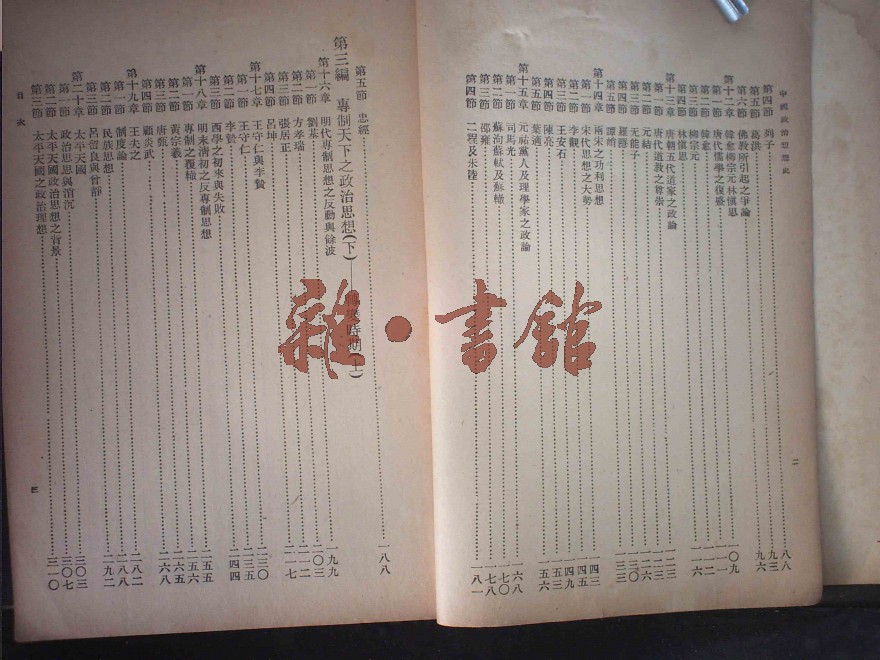 中國政治思想史
第四節 列子 八八
第五節 葛洪 九三
第六節 佛教所引起之爭論 九六
第十一章 韓愈柳宗元林慎思
第一節 唐代儒學之復盛 一〇九
第二節 韓愈
第三節 柳宗元 一一二
第四節 林慎思 一一六
第十三章 唐朝五代道家之政論
第一節 唐代道教之尊崇
第二節 元結
第三節 无能子
第四節 羅隱
第五節 譚峭 一三三
第十四章 兩宋之功利思想
第一節 宋代思想之大勢 一四三
第二節 李覯
第三節 王安石 一四九
第四節 陳亮
第五節 葉適
第十五章 元祐黨人及理學家之政論
第一節 司馬光 一六八
第二節 蘇洵蘇軾及蘇轍 一七〇
第三節 邵雍 一七八
第四節 二程及朱陸 一八一
二
第五節 忠經 一八八
第三編 專制天下之政治思想(下)——時期(上)
第十六章 明代專制思想之反動與餘波
第一節 劉基 一九九
第二節 方孝瑞 二〇三
第三節 張居正 二一二
第四節 呂坤 二一七
第十七章 王守仁與李贄
第一節 王守仁 二三〇
第二節 李贄 二三五
第三節 西學之初來與失敗 二四四
第十八章 明末清初之反專制思想
第一節 專制之覆轍 二五五
第二節 黃宗羲 二五六
第三節 唐甄 二六五
第四節 顧炎武 二六八
第十九章 王夫之
第一節 制度論 二八二
第二節 民族思想 二八八
第三節 呂留良與曾靜 二九〇
第二十章 太平天國
第一節 政治思想與消沉 三〇三
第二節 太平天國政治思想之背景 三〇七
第三節 太平天國之政治理想 三一〇
目次
三
雜·書館